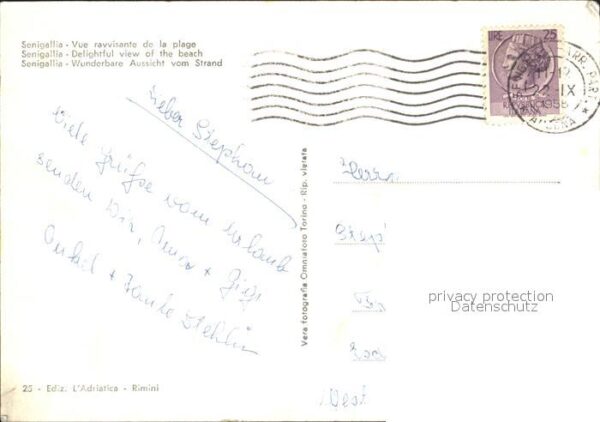 Senigallia - Vue ravvisante de la plage
Senigallia - Delightful view of the beach
Senigallia - Wunderbare Aussicht vom Strand
25
22 IX
1958
ANCONA
Lieber Stephan
Viele Grüße vom Urlaub
senden Dir, Oma +
Onkel + Tante Stehlin
Vera fotografia Omniafoto Torino - Rip. vietata
Herrn
Step
privacy protection
Datenschutz
West
23 - Ediz. L'Adriatica - Rimini